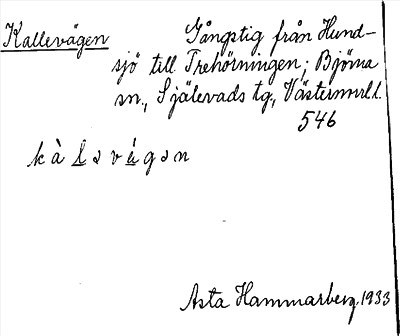 Kallevägen Gångstig från Hund-
sjö till Trehörningen; Björna
sn., Själevads tg., Västernrl l.
546
kàlǝvágǝn
Asta Hammarberg. 1933